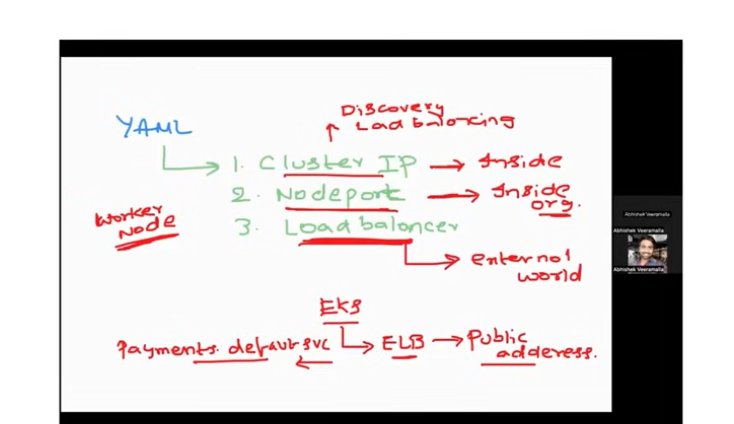 Discovery
Load balancing
YAML
1. Cluster IP → Inside
2. Nodeport → Inside org.
Worker Node
3. Load balancer
external world
EKS
Payments.default.svc
ELB → Public adderess.
Abhishek Veeramalla
Abhishek Veeramalla
Abhishek Veeramalla